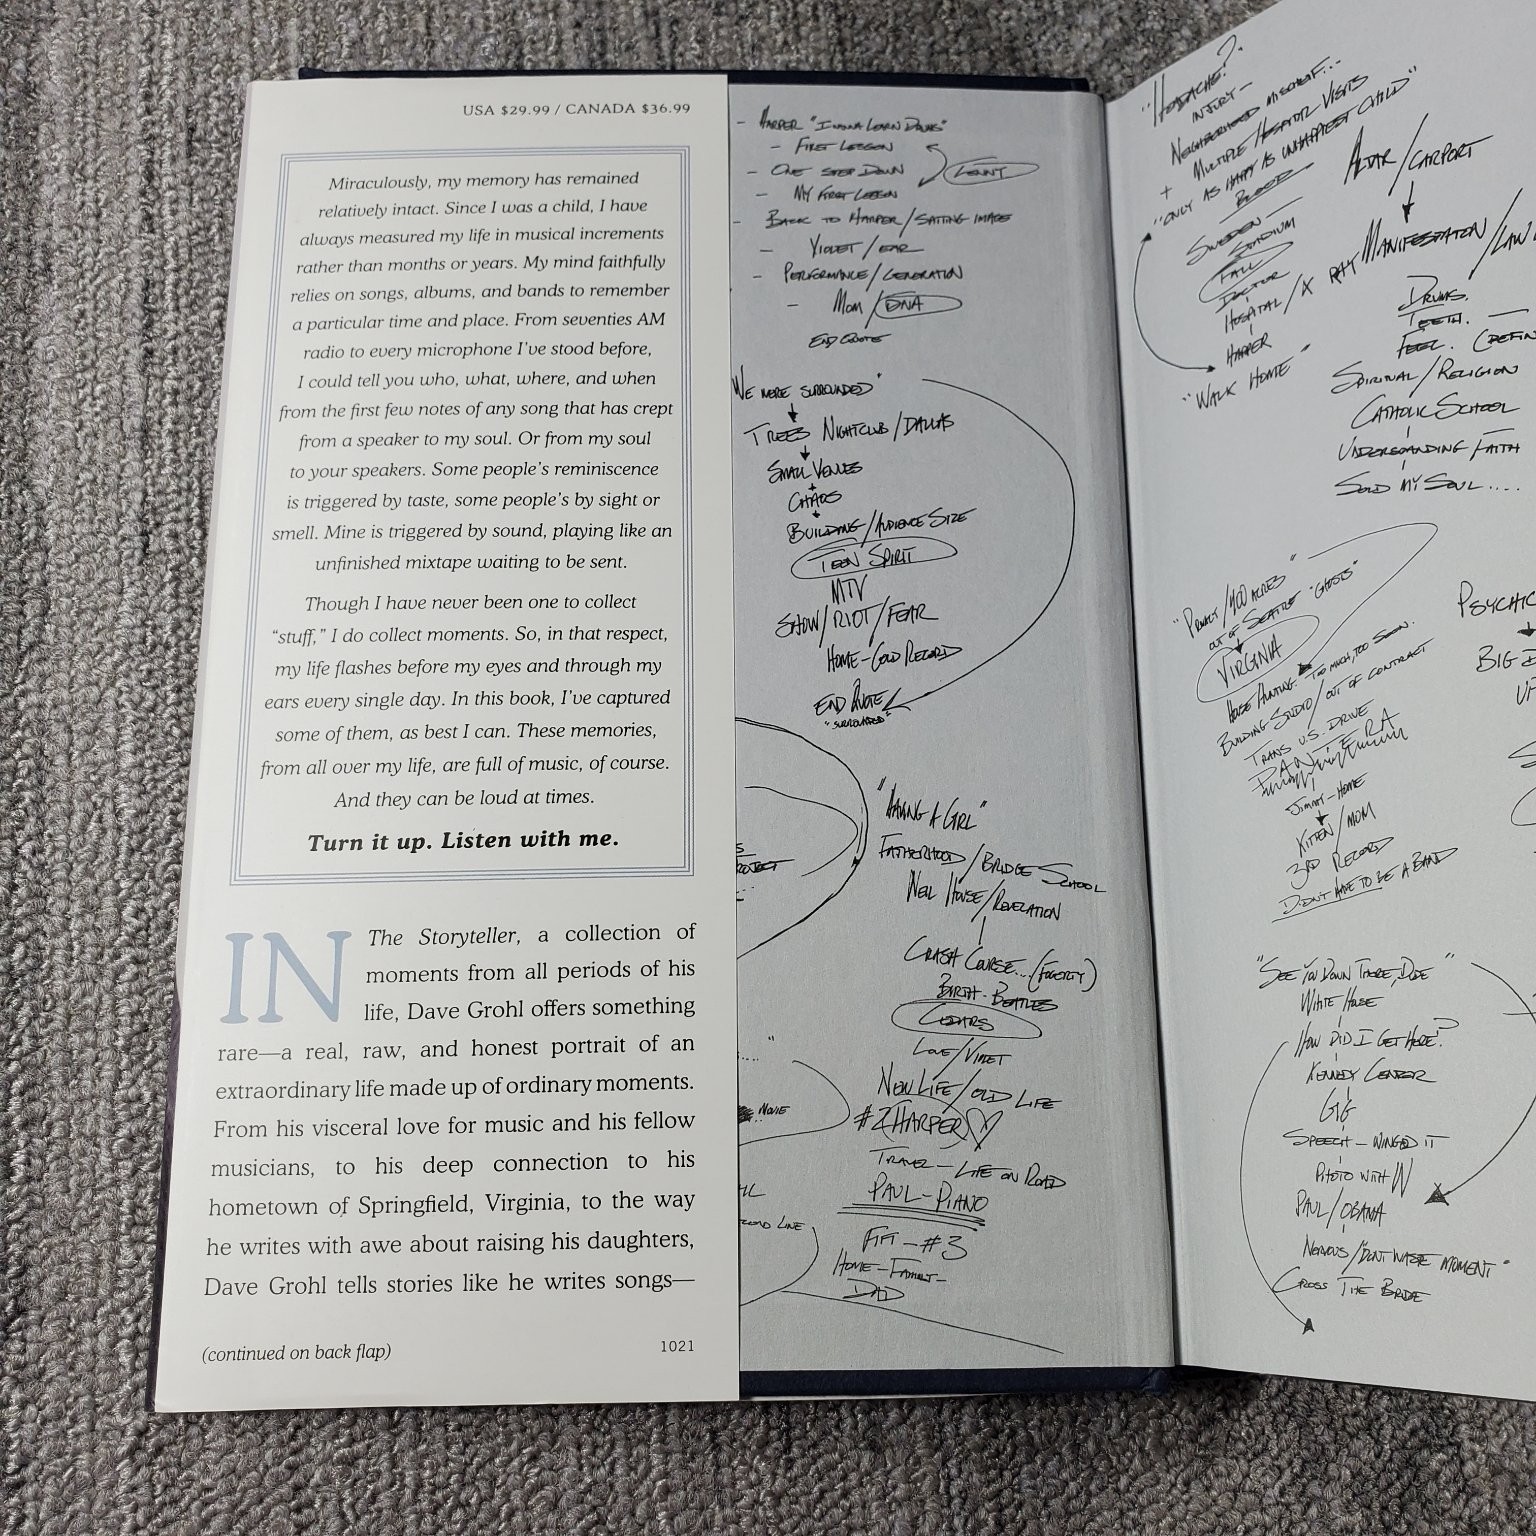 USA $29.99 / CANADA $36.99
Miraculously, my memory has remained
relatively intact. Since I was a child, I have
always measured my life in musical increments
rather than months or years. My mind faithfully
relies on songs, albums, and bands to remember
a particular time and place. From seventies AM
radio to every microphone I've stood before,
I could tell you who, what, where, and when
from the first few notes of any song that has crept
from a speaker to my soul. Or from my soul
to your speakers. Some people's reminiscence
is triggered by taste, some people's by sight or
smell. Mine is triggered by sound, playing like an
unfinished mixtape waiting to be sent.
Though I have never been one to collect
“stuff,” I do collect moments. So, in that respect,
my life flashes before my eyes and through my
ears every single day. In this book, I've captured
some of them, as best I can. These memories,
from all over my life, are full of music, of course.
And they can be loud at times.
Turn it up. Listen with me.
IN The Storyteller, a collection of
moments from all periods of his
life, Dave Grohl offers something
rare—a real, raw, and honest portrait of an
extraordinary life made up of ordinary moments.
From his visceral love for music and his fellow
musicians, to his deep connection to his
hometown of Springfield, Virginia, to the way
he writes with awe about raising his daughters,
Dave Grohl tells stories like he writes songs—
(continued on back flap)
1021
- HARPER "I WANNA LEARN DRUMS"
- FIRST LESSON
- ONE STEP DOWN
LENNY
- MY FIRST LESSON
- BACK TO HARPER/SATTING IMAGE
- VIOLET/EAR
- PERFORMANCE/GENERATION
- MOM/DNA
END QUOTE
WE WERE SURROUNDED"
TREES NIGHTCLUB/DALLAS
SMALL VENUES
CHAOS
BUILDING/AUDIENCE SIZE
TEEN SPIRIT
MTV
SHOW/RIOT/FEAR
HOME-GOLD RECORD
END QUOTE
"SURROUNDED"
"HAVING A GIRL"
FATHERHOOD/BRIDGE SCHOOL
NEIL HOUSE/REVELATION
CRASH COURSE...(FOGERTY)
BIRTH-BEATLES
CEDARS
LOVE/VIOLET
NEW LIFE/OLD LIFE
#2 HARPER
TRAVEL-LIFE ON ROAD
PAUL-PIANO
#3
HOME-FAMILY-
DAD
MOVIE
LINE
"HEADACHE?
INJURY-
NEIGHBORHOOD MISCHIEF...
+ MULTIPLE HOSPITAL VISITS
"ONLY AS HAPPY AS UNHAPPIEST CHILD"
BLOOD
SWEDEN
STADIUM
FALL
DOCTOR
HOSPITAL/X RAY
HARPER
"WALK HOME"
ALTAR/CARPORT
MANIFESTATION/LAW
DRUMS.
TEETH.
FEEL.
SPIRITUAL/RELIGION
CATHOLIC SCHOOL
UNDERSTANDING FAITH
SOLD MY SOUL....
OUT OF SEATTLE "GHOSTS"
VIRGINIA
HOUSE HUNTING. TOO MUCH, TOO SOON.
BUILDING STUDIO/OUT OF CONTRACT
TRANS U.S. DRIVE
PANTERA
JIMMY-HOME
KITTEN/MOM
3RD RECORD
DIDN'T HAVE TO BE A BAND
PSYCHIC
BIG
"SEE YOU DOWN THERE, DUDE"
WHITE HOUSE
HOW DID I GET HERE?
KENNEDY CENTER
GG
SPEECH-WINGED IT
PHOTO WITH W
PAUL/OBAMA
NERVOUS/"DONT WASTE MOMENT"
CROSS THE BRIDGE